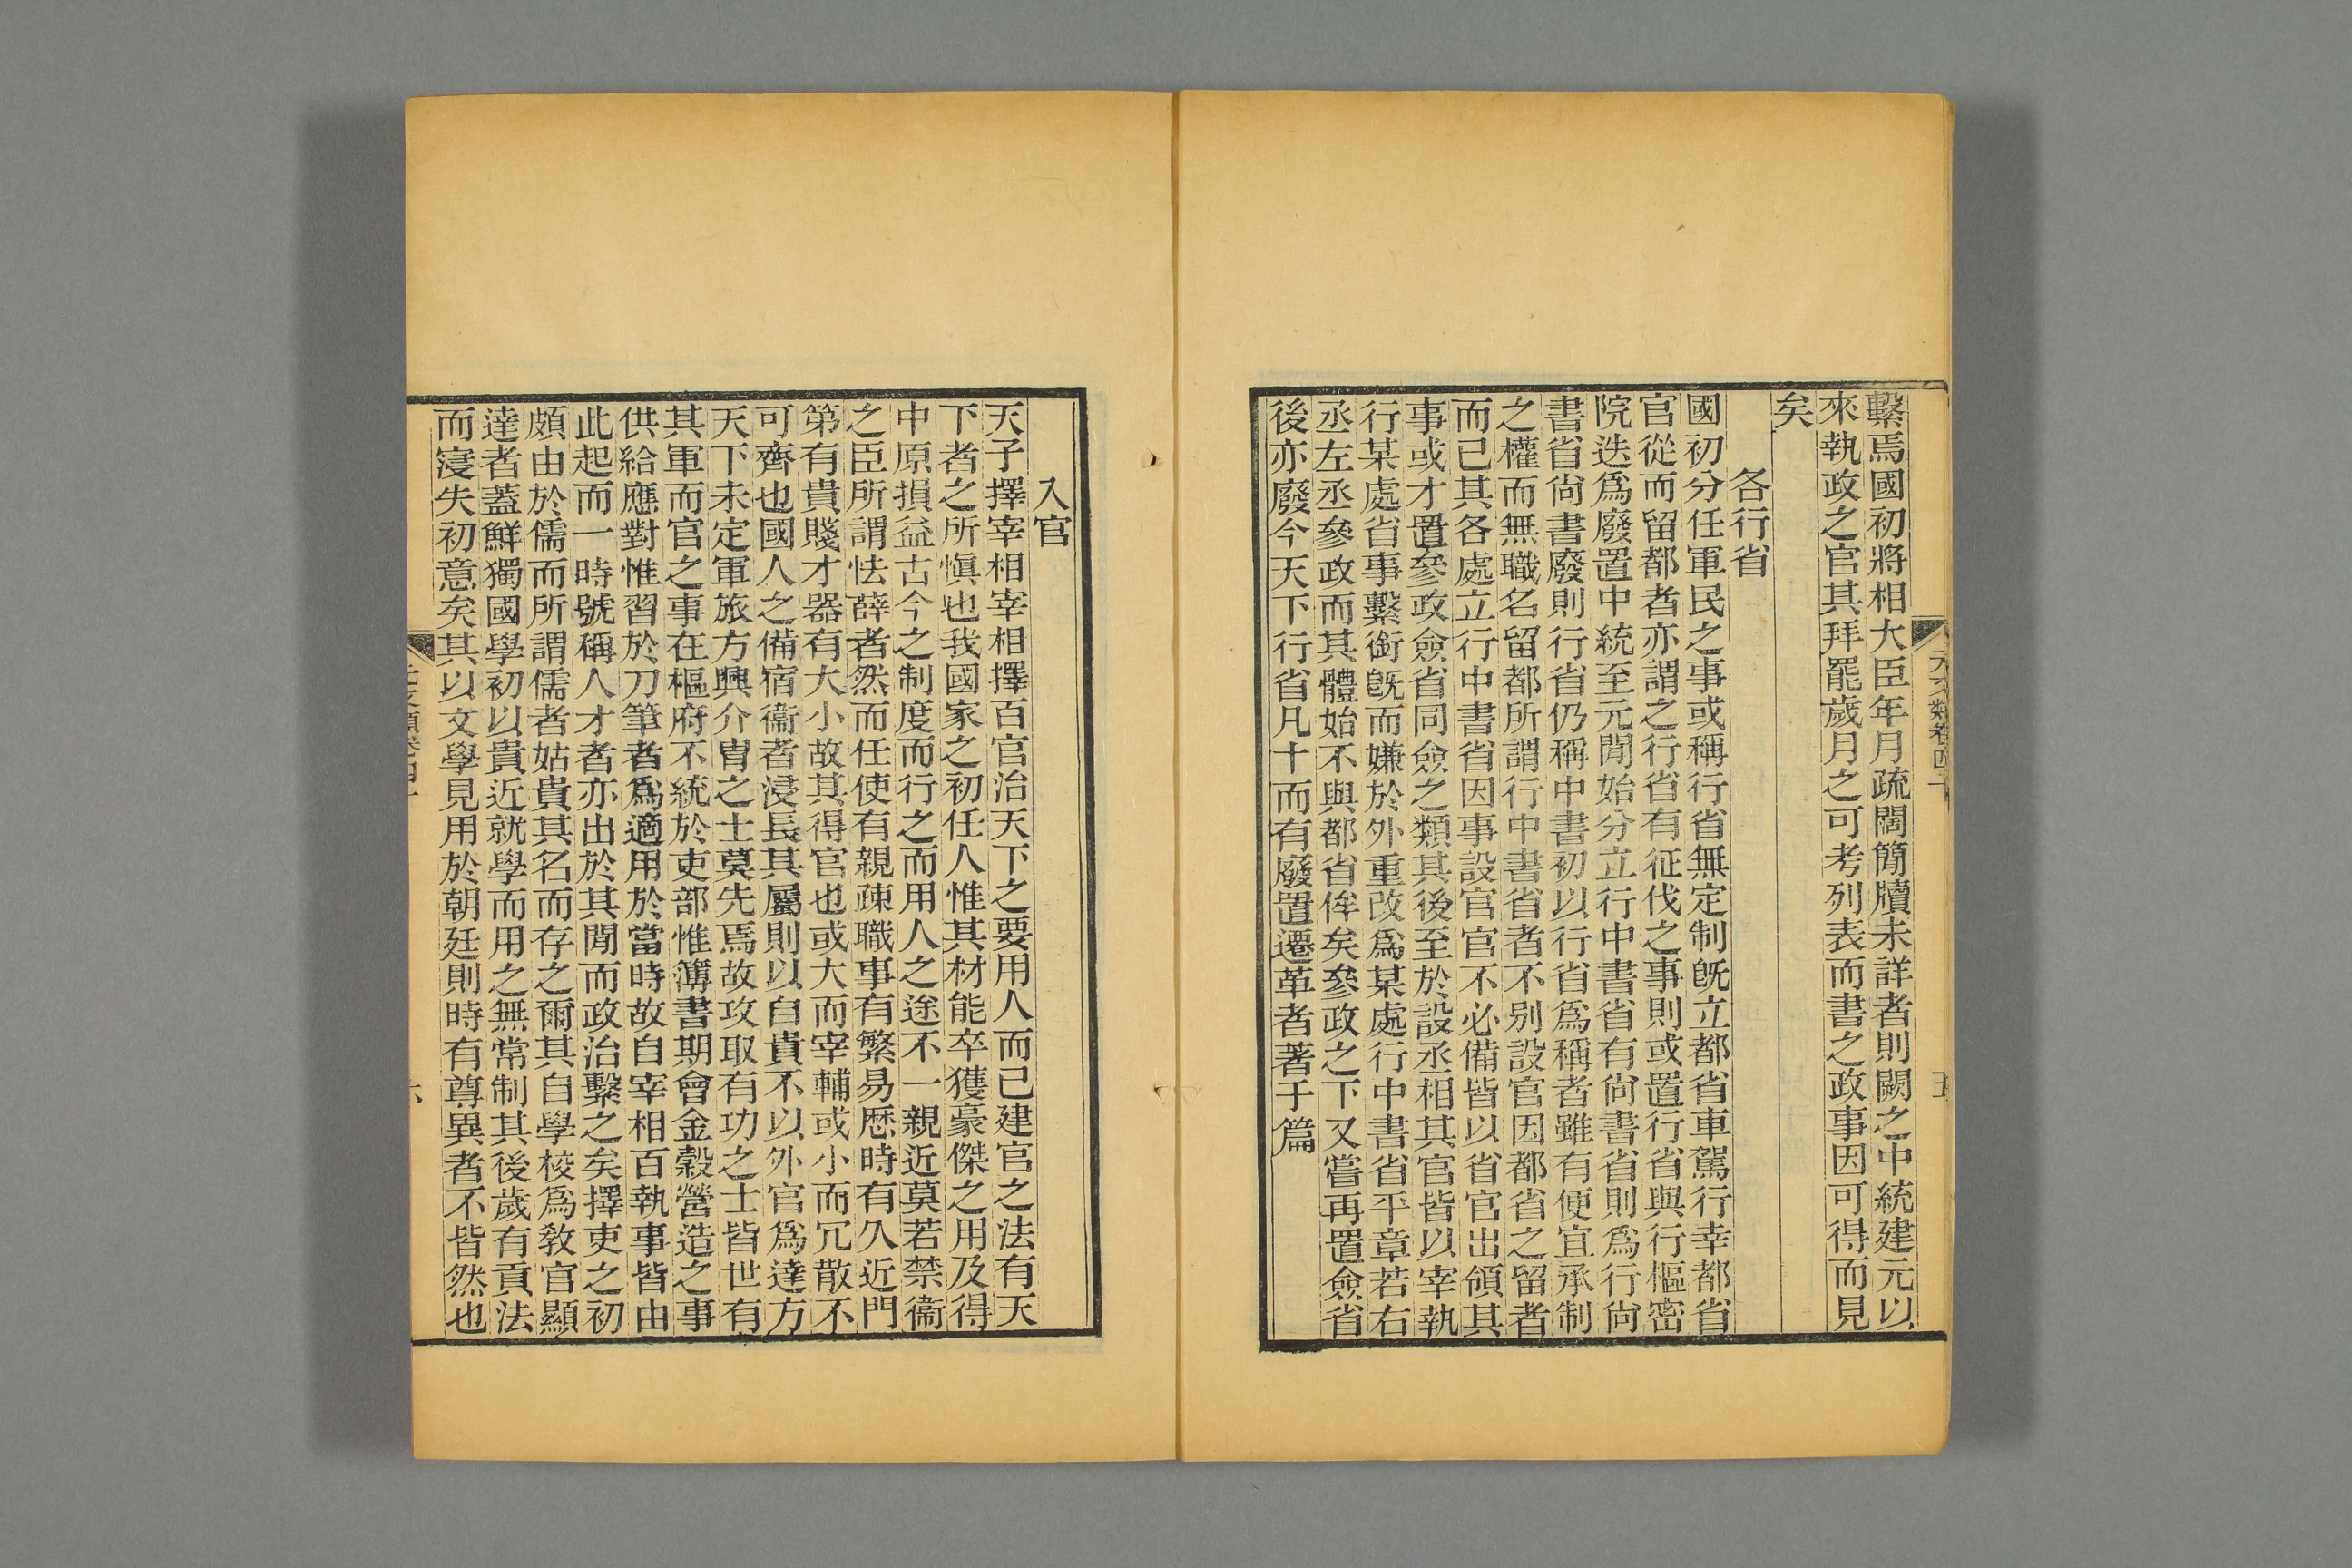 元文類卷四十
五
繫焉國初將相大臣年月疏闊簡牘未詳者則闕之中統建元以
來執政之官其拜罷歲月之可考列表而書之政事因可得而見
矣
各行省
國初分任軍民之事或稱行省無定制旣立都省車駕行幸都省
官從而留都者亦謂之行省有征伐之事則或置行省與行樞密
院迭爲廢置中統至元閒始分立行中書省有尙書省則爲行尙
書省尙書廢則行省仍稱中書初以行省爲稱者雖有便宜承制
之權而無職名留都所謂行中書省者不别設官因都省之留者
而已其各處立行中書省因事設官官不必備皆以省官出領其
事或才置參政僉省同僉之類其後至於設丞相其官皆以宰執
行某處省事繫銜旣而嫌於外重改爲某處行中書省平章若右
丞左丞參政而其體始不與都省侔矣參政之下又嘗再置僉省
後亦廢今天下行省凡十而有廢置遷革者著于篇
入官
天子擇宰相宰相擇百官治天下之要用人而已建官之法有天
下者之所愼也我國家之初任人惟其材能卒獲豪傑之用及得
中原損益古今之制度而行之而用人之途不一親近莫若禁衞
之臣所謂怯薛者然而任使有親疎職事有繁易歴時有久近門
第有貴賤才器有大小故其得官也或大而宰輔或小而冗散不
可齊也國人之備宿衞者浸長其屬則以自貴不以外官爲達方
天下未定軍旅方興介胄之士莫先焉故攻取有功之士皆世有
其軍而官之事在樞府不統於吏部惟簿書期會金穀營造之事
供給應對惟習於刀筆者爲適用於當時故自宰相百執事皆由
此起而一時號稱人才者亦出於其閒而政治繫之矣擇吏之初
頗由於儒而所謂儒者姑貴其名而存之爾其自學校爲敎官顯
達者蓋鮮獨國學初以貴近就學而用之無常制其後歲有貢法
而寖失初意矣其以文學見用於朝廷則時有尊異者不皆然也
元文類卷四十
六